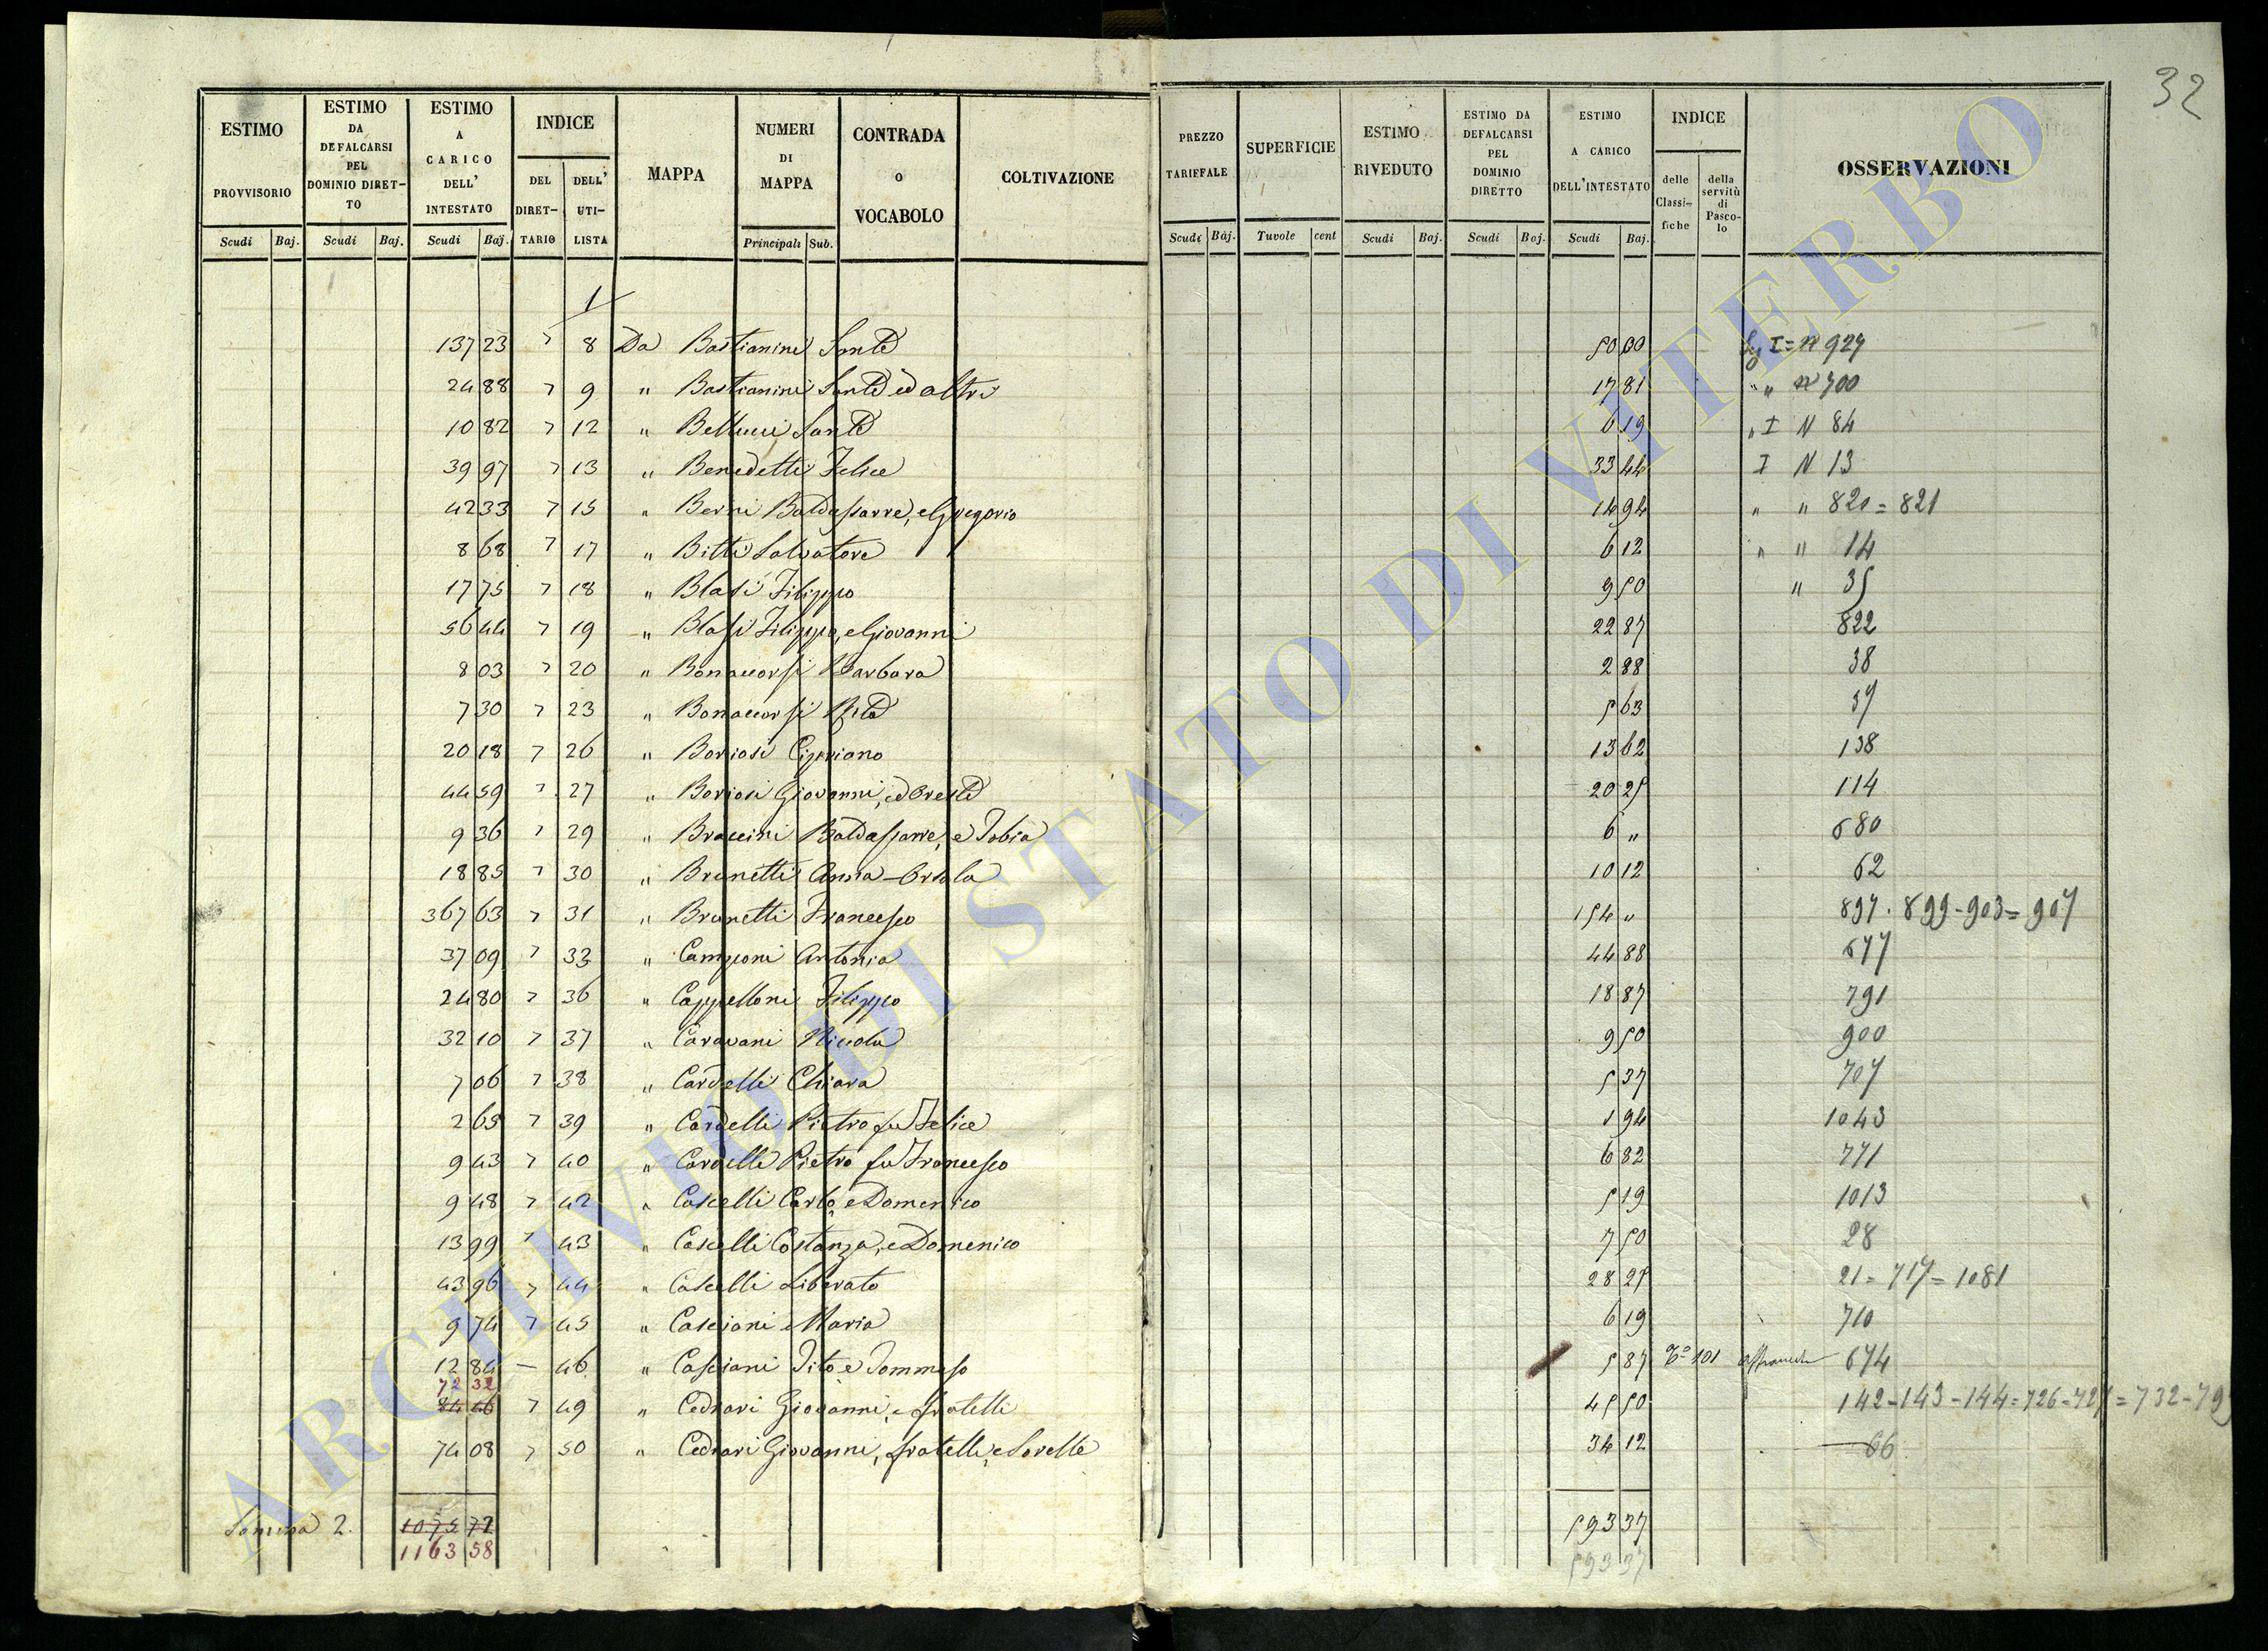 32
ESTIMO PROVVISORIO
ESTIMO DA DEFALCARSI PEL DOMINIO DIRET-TO
ESTIMO A CARICO DELL' INTESTATO
INDICE
DEL DIRET-TARIO
DELL' UTI-LISTA
MAPPA
NUMERI DI MAPPA
CONTRADA o VOCABOLO
COLTIVAZIONE
PREZZO TARIFFALE
SUPERFICIE
ESTIMO RIVEDUTO
ESTIMO DA DEFALCARSI PEL DOMINIO DIRETTO
ESTIMO A CARICO DELL'INTESTATO
INDICE
delle Classi-fiche
della servitù di Pasco-lo
OSSERVAZIONI
Scudi Baj. Scudi Baj. Scudi Baj. Principali Sub. Scudi Baj. Tavole cent Scudi Baj. Scudi Baj. Scudi Baj.
1
137 23 7 8 Da Bastianini Sante 50 00 I = N 929
24 88 7 9 " Bastianini Sante ed altri 17 81 " " N 700
10 82 7 12 " Bellucci Sante 6 19 " I N 84
39 97 7 13 " Benedetti Felice 33 44 I N 13
42 33 7 15 " Berni Baldassarre, e Gregorio 14 94 " " 820 = 821
8 68 7 17 " Bitti Salvatore 6 12 " " 14
17 75 7 18 " Blasi Filippo 9 50 " 35
56 44 7 19 " Blasi Filippo, e Giovanni 22 87 822
8 03 7 20 " Bonaccorsi Barbara 2 88 38
7 30 7 23 " Bonaccorsi Rita 5 63 37
20 18 7 26 " Boriosi Cipriano 13 62 138
44 59 7 27 " Boriosi Giovanni, ed Oreste 20 25 114
9 36 7 29 " Braccini Baldassarre, e Tobia 6 " 680
18 85 7 30 " Brunetti Anna-Orsola 10 12 62
367 63 7 31 " Brunetti Francesco 154 " 897. 899-903=907
37 09 7 33 " Camponi Antonia 44 88 677
24 80 7 36 " Cappelloni Filippo 18 87 791
32 10 7 37 " Caravani Niccola 9 50 900
7 06 7 38 " Cardelli Chiara 5 37 707
2 65 7 39 " Cardelli Pietro fu Felice 1 94 1043
9 43 7 40 " Cardelli Pietro fu Francesco 6 82 771
9 48 7 42 " Cascelli Carlo, e Domenico 5 19 1013
13 99 7 43 " Cascelli Costanza, e Domenico 7 50 28
43 96 7 44 " Cascelli Liberato 28 25 21 = 717 = 1081
9 74 7 45 " Casciani Maria 6 19 710
12 84 - 46 " Casciani Tito e Tommaso 5 87 101 674
72 32
84 46 7 49 " Cednari Giovanni, e fratelli 45 50 142-143-144=726-727=732-79
74 08 7 50 " Cednari Giovanni, fratelli, e Sorelle 34 12 66
Somma 2. 1075 72 593 37
1163 58 593 37
ARCHIVIO DI STATO DI VITERBO